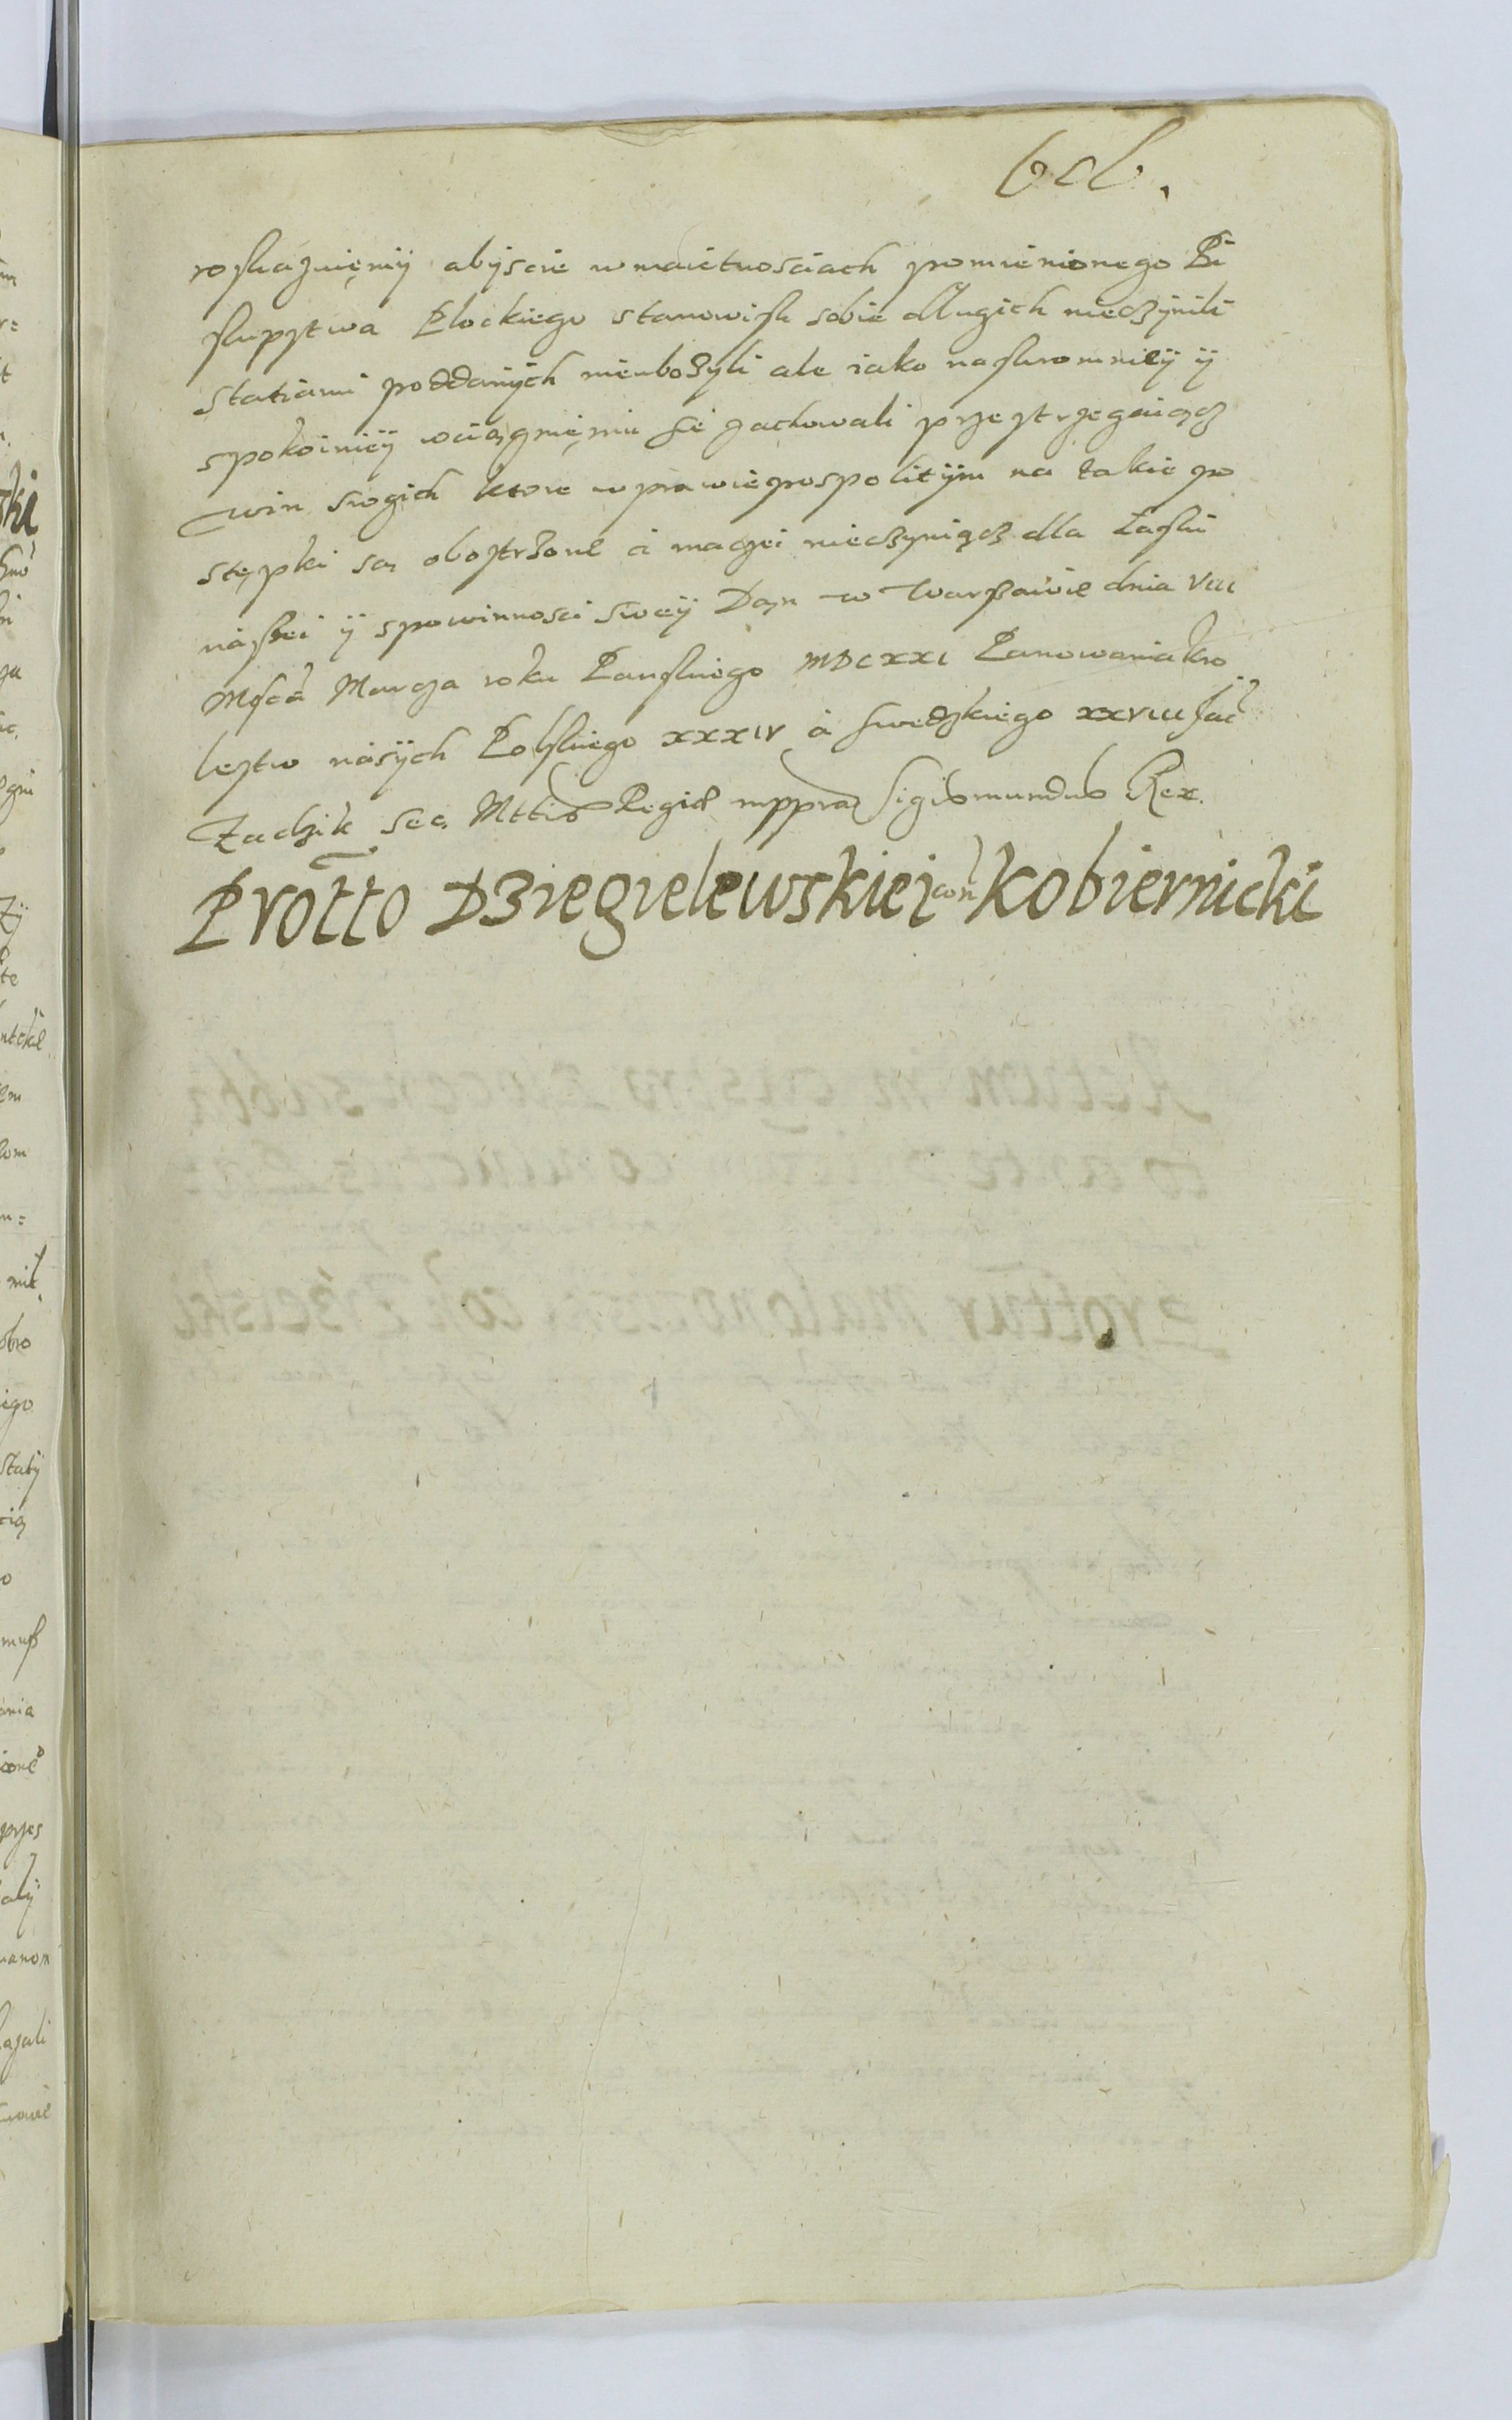 roskazuięmÿ abÿscie w maietnosciach pomienionego Bi
skupstwa Plockiego stanowisk sobie dlugich nieczÿnili
statiami poddanÿch nieubozyli ale iako naskromnieÿ ÿ
spokoinieÿ wciągnięniu sie zachowali przestrzegaiącz
win srogich ktore w prawie pospolitÿm na takie po
stępki są obostrzone a inaczei nieczyniącz dla laski
naszei ÿ spowinnosci sweÿ Dan w Warszawie dnia VIII
Msca Marca roku Panskiego MDCXXI Panowania kro
lestw nasÿch Polskiego XXXIV a Swedzkiego XXVIII Jac
Zadzik Sec. Mttis Regiæ mppra Sigismundus Rex.
Protto Dziegielewskiei con Kobiernicki